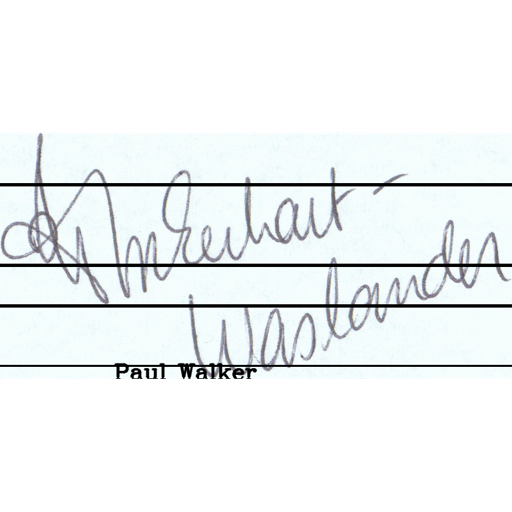 Erhart-
Waslander
Paul Walker